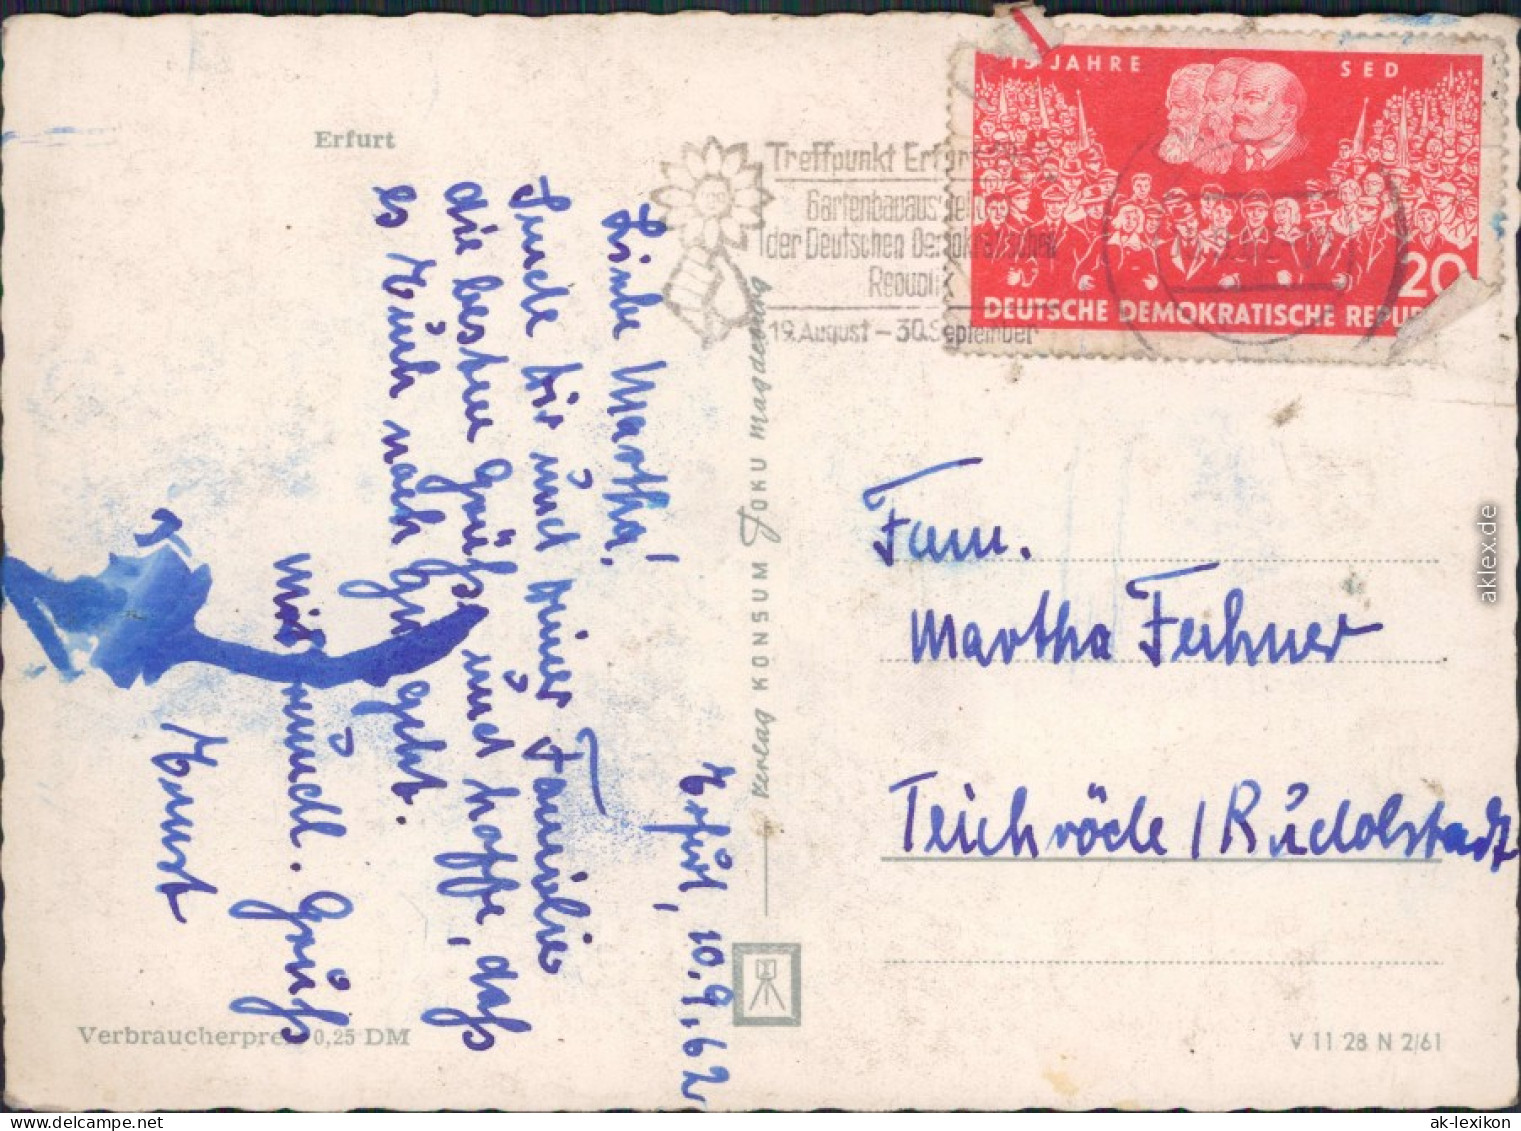 Erfurt
Erfurt, 10.9.62
Liebe Martha!
Sende Dir und Deiner Familie
die besten Grüße und hoffe, daß
es Euch noch gut geht.
Gruß
Ernst
Verbraucherpreis 0,25 DM
Verlag KONSUM FOKU Magdeburg
Treffpunkt Erfurt
Gartenbauausstellung
der Deutschen Demokratischen
Republik
19. August – 30. September
15 JAHRE SED
20
DEUTSCHE DEMOKRATISCHE REPU
Fam.
Martha Fechner
Teichröda / Rudolstadt
V 11 28 N 2/61
aklex.de
ak-lexikon